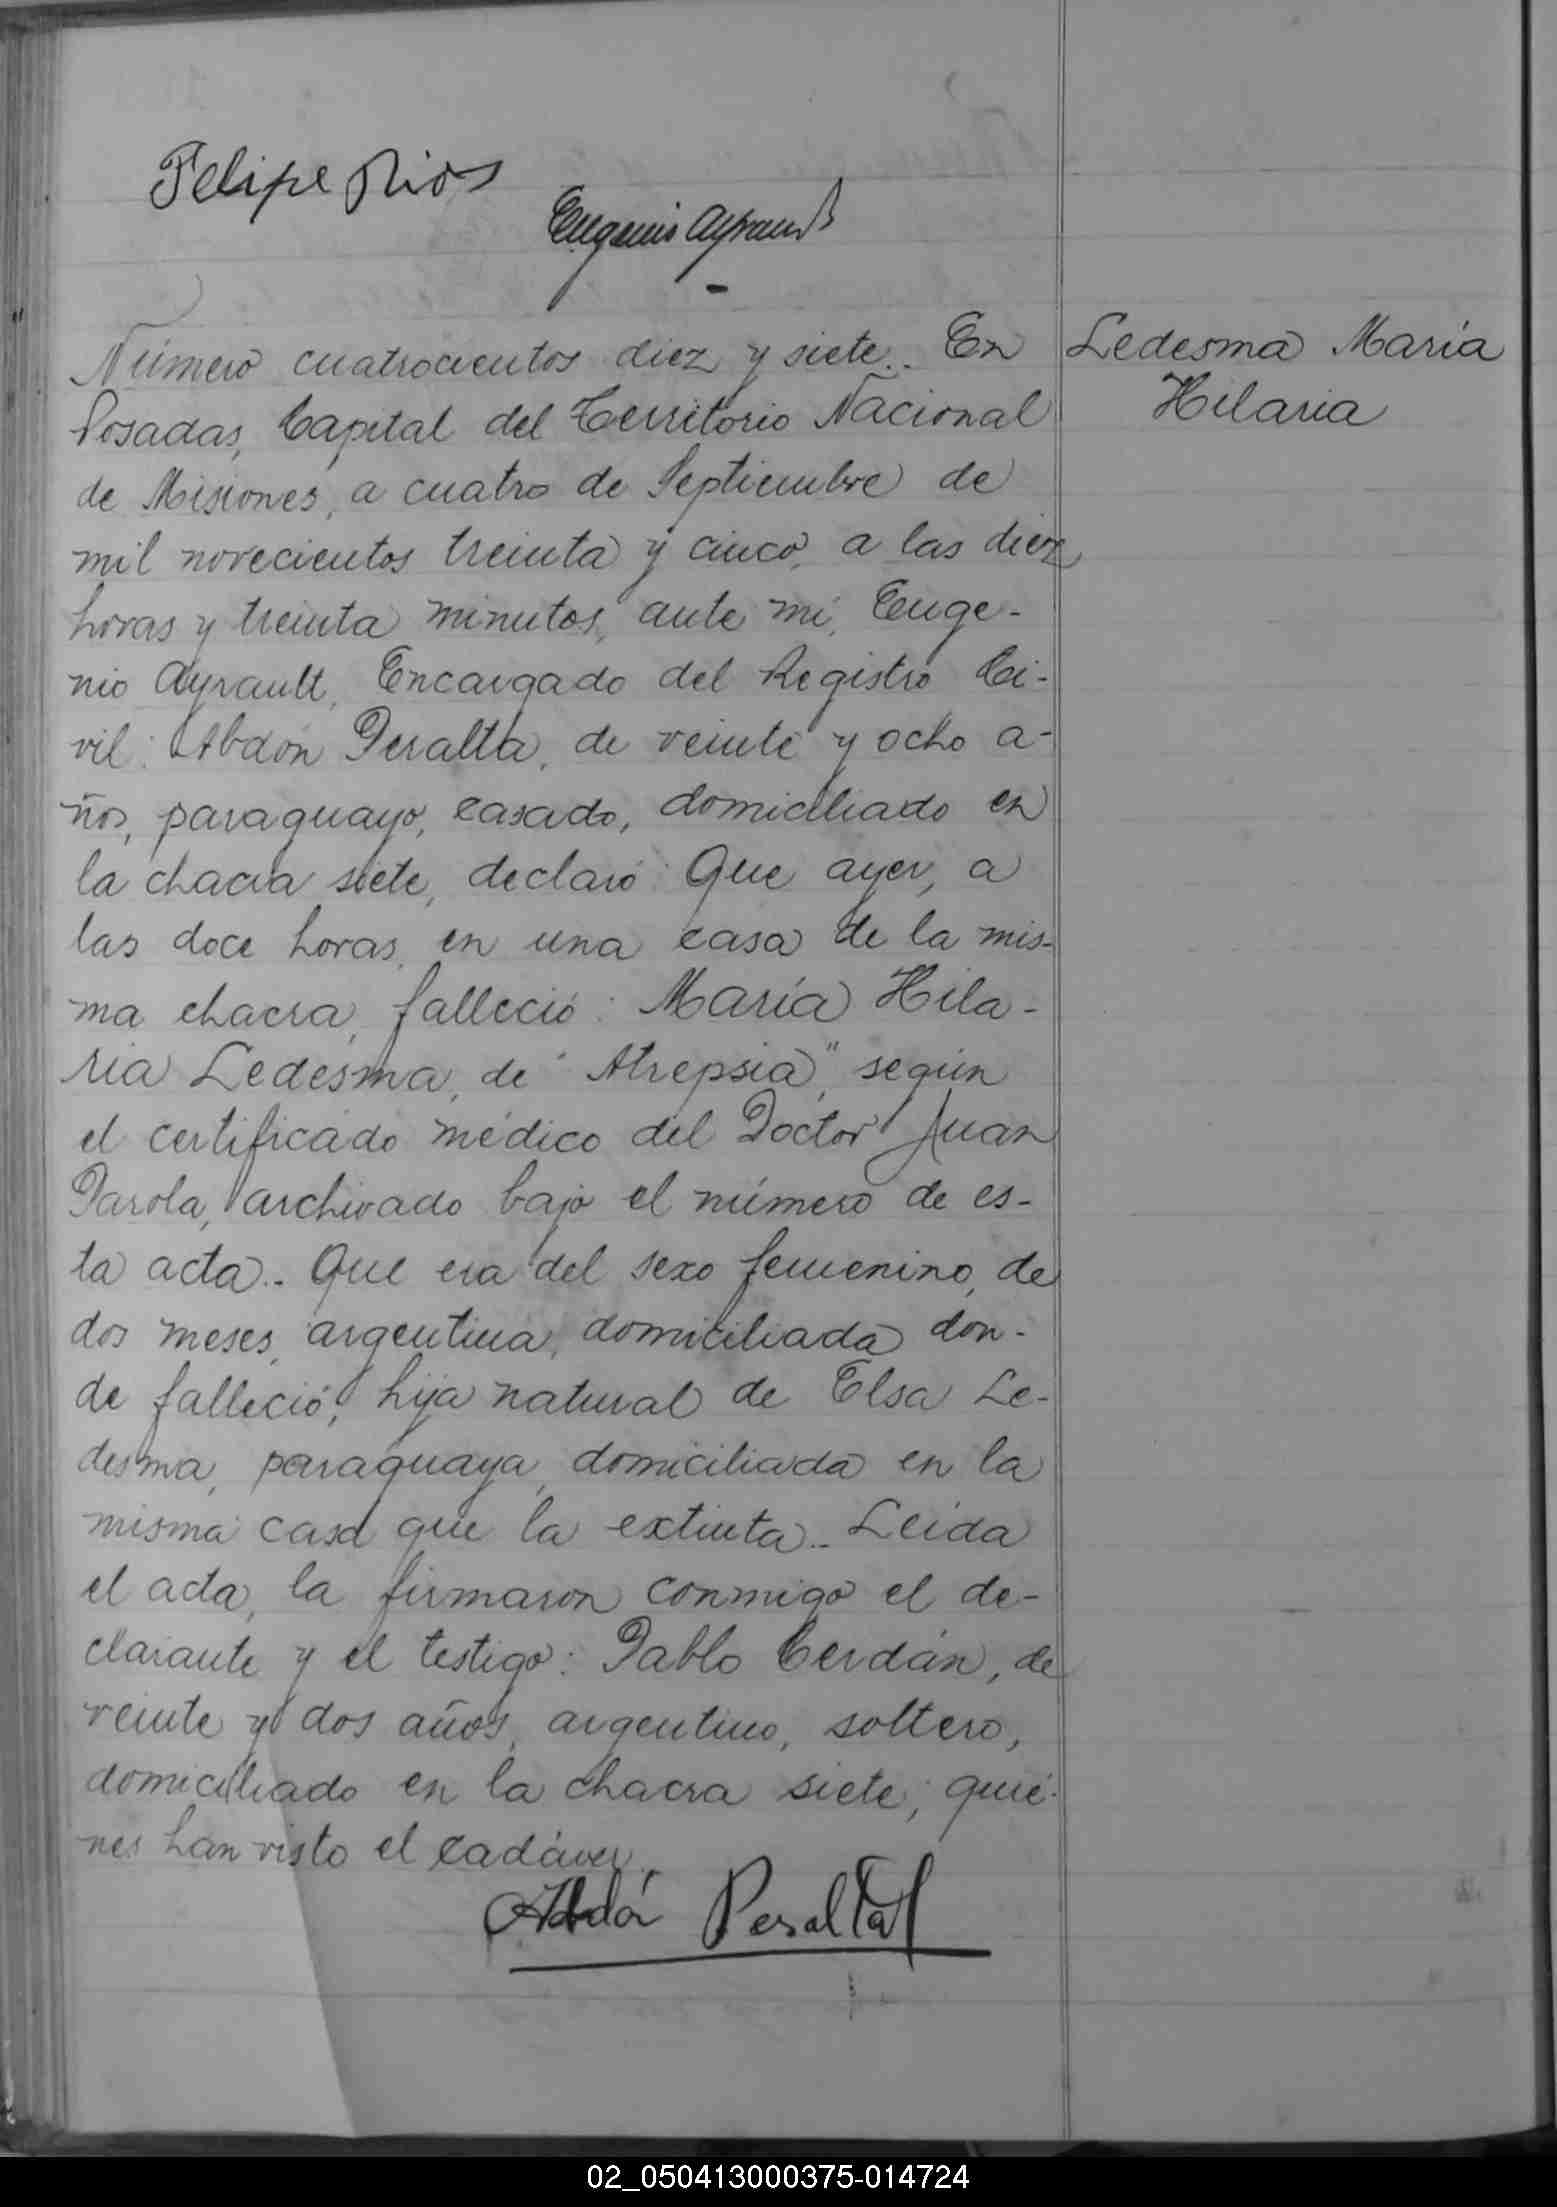 Felipe Rios
Eugenio Ayrault
Número cuatrocientos diez y siete.. En
Ledesma María
Hilaria
Posadas, Capital del Territorio Nacional
de Misiones, a cuatro de Septiembre de
mil novecientos treinta y cinco, a las diez
horas y treinta minutos, ante mi, Euge-
nio Ayrault, Encargado del Registro Ci-
vil: Abdón Peralta, de veinte y ocho a-
ños, paraguayo, casado, domiciliado en
la chacra siete, declaró: Que ayer, a
las doce horas, en una casa de la mis-
ma chacra, falleció: María Hila-
ria Ledesma, de "Atrepsia", según
el certificado médico del Doctor Juan
Parola, archivado bajo el número de es-
ta acta.. Que era del sexo femenino, de
dos meses, argentina, domiciliada don-
de falleció; hija natural de Elsa Le-
desma, paraguaya, domiciliada en la
misma casa que la extinta.. Leída
el acta, la firmaron conmigo el de-
clarante y el testigo: Pablo Cerdán, de
veinte y dos años, argentino, soltero,
domiciliado en la chacra siete; quié-
nes han visto el cadáver.
Abdón Peralta
02_050413000375-014724